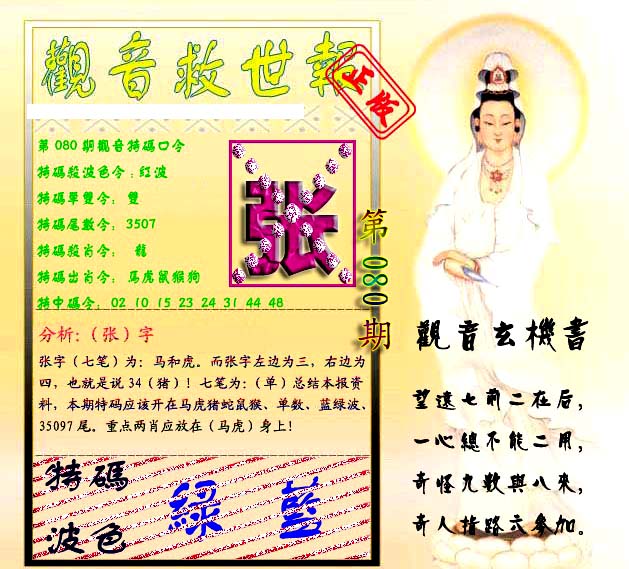 觀音救世報
正版
第080期觀音特碼口令
特碼殺波色令:紅波
特碼單雙令: 雙
特碼尾數令: 3507
特碼殺肖令: 龍
特碼出肖令: 馬虎鼠猴狗
特中碼令: 02 10 15 23 24 31 44 48
张
第080期
分析:(张)字
张字(七笔)为: 马和虎。而张字左边为三,右边为
四,也就是说34(猪)!七笔为:(单)总结本报资
料,本期特码应该开在马虎猪蛇鼠猴、单数、蓝绿波、
35097尾。重点两肖应放在(马虎)身上!
特碼
波色
綠 藍
觀音玄機書
望遠七前二在后,
一心總不能二用,
奇怪九數與八來,
奇人指路六參加。